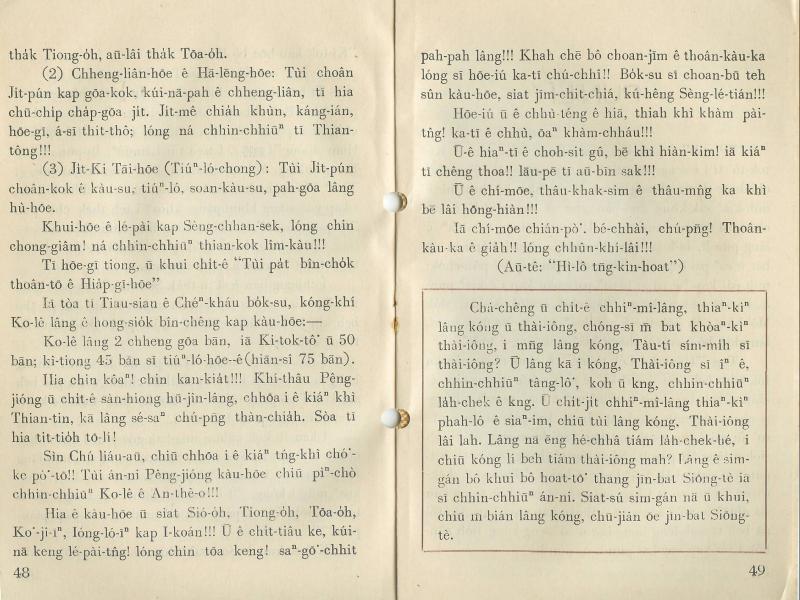 tha̍k Tiong-o̍h, aū-lâi tha̍k Tōa-o̍h.
(2) Chheng-liân-hōe ê Hā-lēng-hōe: Tùi choân
Ji̍t-pún kap gōa-kok, kúi-nā-pah ê chheng-liân, tī hia
chū-chi̍p cha̍p-gōa ji̍t. Ji̍t-mê chia̍h khùn, káng-ián,
hōe-gī, á-sī thit-thô; lóng ná chhin-chhiūⁿ tī Thian-
tông!!!
(3) Ji̍t-Ki Tāi-hōe (Tiúⁿ-ló-chong): Tùi Ji̍t-pún
choân-kok ê kàu-su, tiúⁿ-ló, soan-kàu-su, pah-gōa lâng
hù-hōe.
Khui-hōe ê lé-pài kap Sèng-chhan-sek, lóng chin
chong-giâm! ná chhin-chhiūⁿ thian-kok lîm-kàu!!!
Tī hōe-gī tiong, ū khui chi̍t-ê “Tùi pa̍t bîn-cho̍k
thoân-tō ê Hia̍p-gī-hōe”
Iā tòa tī Tiau-sian ê Chéⁿ-kháu bo̍k-su, kóng-khí
Ko-lê lâng ê hong-sio̍k bîn-chêng kap kàu-hōe:—
Ko-lê lâng 2 chheng gōa bān, iā Ki-tok-tô͘ ū 50
bān; kî-tiong 45 bān sī tiúⁿ-ló-hōe--ê (hiān-sî 75 bān).
Hia chin kôaⁿ! chin kan-kia̍t!!! Khí-thâu Pêng-
jióng ū chi̍t-ê sàn-hiong hū-jîn-lâng, chhōa i ê kiáⁿ khì
Thian-tin, kā lâng sé-saⁿ chú-pn̄g thàn-chia̍h. Sòa tī
hia tit-tio̍h tō-lí!
Sìn Chú liáu-aū, chiū chhōa i ê kiáⁿ tńg-khì chó͘-
ke pò͘-tō!! Tùi án-ni Pêng-jióng kàu-hōe chiū pìⁿ-chò
chhin-chhiūⁿ Ko-lê ê An-thè-o!!!
Hia ê kàu-hōe ū siat Sió-o̍h, Tiong-o̍h, Tōa-o̍h,
Ko͘-jî-īⁿ, Ióng-ló-īⁿ kap I-koán!!! Ū ê chi̍t-tiâu ke, kúi-
nā keng lé-pài-tn̂g! lóng chin tōa keng! saⁿ-gō͘-chhit
48
pah-pah lâng!!! Khah chē bô choan-jīm ê thoân-kàu-ka
lóng sī hōe-iú ka-tī chú-chhî!! Bo̍k-su sī choan-bū teh
sûn kàu-hōe, siat jīm-chit-chiá, kú-hêng Sèng-lé-tián!!!
Hōe-iú ū ê chhù-téng ê hiā, thiah khì khàm pài-
tn̂g! ka-tī ê chhù, ōaⁿ khàm-chháu!!!
Ū-ê hiaⁿ-tī ê choh-sit gû, bē khì hiàn-kim! iā kiáⁿ
tī chêng thoa!! lāu-pē tī aū-bīn sak!!!
Ū ê chí-mōe, thâu-khak-sim ê thâu-mn̂g ka khì
bē lâi hōng-hiàn!!!
Iā chí-mōe chián-pò͘, bé-chhài, chú-pn̄g! Thoân-
kàu-ka ê gia̍h!! lóng chhûn-khí-lâi!!!
(Aū-tê: “Hì-lô tn̄g-kin-hoat”)
Chá-chêng ū chi̍t-ê chhiⁿ-mî-lâng, thiaⁿ-kìⁿ
lâng kóng ū thài-iông, chóng-sī m̄ bat khòaⁿ-kìⁿ
thài-iông, i mn̄g lâng kóng, Tàu-tí sím-mi̍h sī
thài-iông? Ū lâng kā i kóng, Thài-iông sī îⁿ ê,
chhin-chhiūⁿ tâng-lô͘, koh ū kng, chhin-chhiūⁿ
la̍h-chek ê kng. Ū chi̍t-ji̍t chhiⁿ-mî-lâng thiaⁿ-kìⁿ
phah-lô ê siaⁿ-im, chiū tùi lâng kóng, Thài-iông
lâi lah. Lâng nā ēng hé-chhá tiám la̍h-chek-hé, i
chiū kóng lí beh tiám thài-iông mah? Lâng ê sim-
gán bô khui bô hoat-tō͘ thang jīn-bat Siōng-tè iā
sī chhin-chhiūⁿ án-ni. Siat-sú sim-gán nā ū khui,
chiū m̄ bián lâng kóng, chū-jiân ōe jīn-bat Siōng-
tè.
49